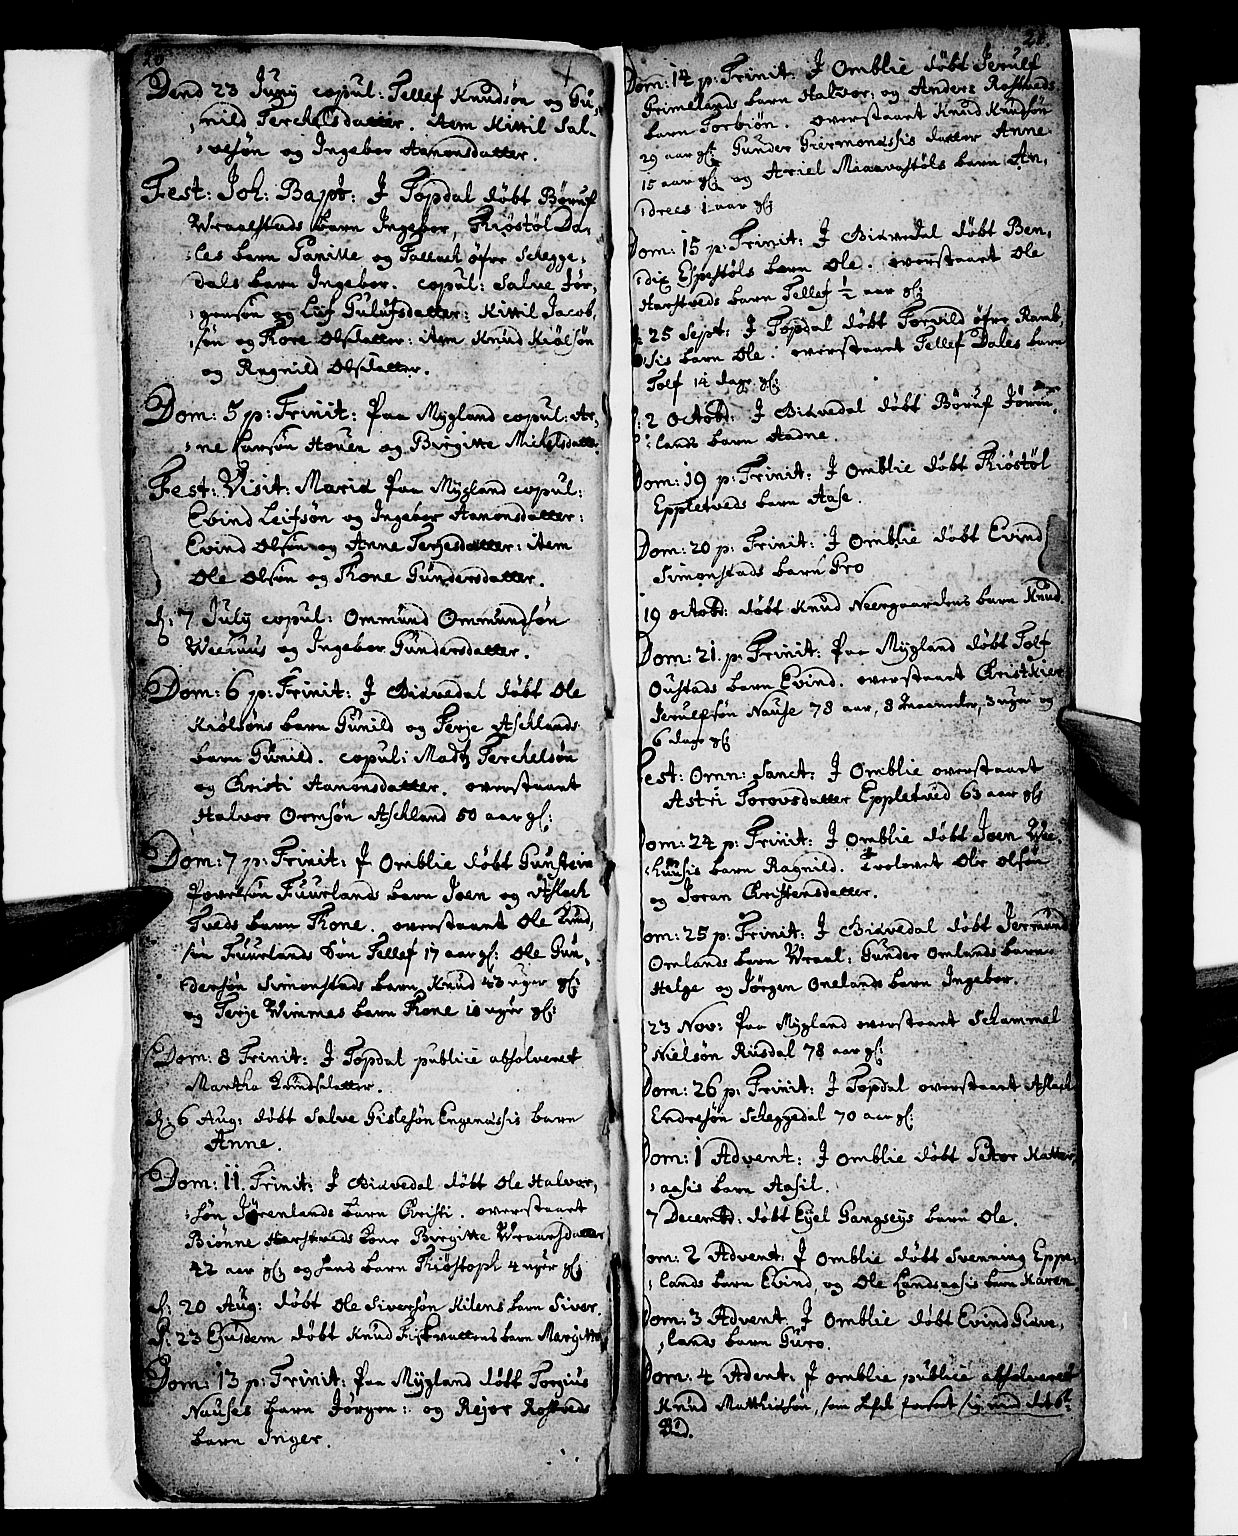 20
Dend 23 Juny copul: Tellef Knudsøn og Gu,
,nild Terchelsdatter. Item Kittil Sal-
,vesøn og Ingebor Aanonsdatter.
Fest: Joh: Bapt: J Topdal døbt Børuf
Wraalstads barn Ingebor, Kiøstøl Da,
,les barn Tanitte og Tallach øfre Schegge,
dals barn Ingebor. copul: Salve Jør,
,gensøn og Lif Gulufsdatter: Kittil Jacob,
søn og Thore Olsdatter: item Knud Kiølsøn
og Ragnild Olsdatter.
Dom: 5 p: Trinit: paa Mygland copul: Ar,
,ne Larsøn Houen og Birgitte Michelsdatter.
Fest: Visit: Mariæ paa Mygland copul:
Evind Leifsøn og Ingebor Aanonsdatter:
Evind Olsøn og Anne Terjesdatter: item
Ole Olsøn og Thone Gundersdatter.
d: 7 July copul: Ommund Ommundsøn
og Ingebor Gundersdatter.
Dom: 6 p: Trinit: J Gidvedal døbt Ole
Kiølsøns barn Gunild og Terje Aschlands
barn Gunild. copul: Madtz Terchelsøn
og Christi Aanonsdatter. overstaaet
Halvor Ormsøn Aschland 50 aar gl:
Dom: 7 p: Trinit: J Omblie døbt Gunstein
Povelsøn Fuurlands barn Joen og Aslach
Tveds barn Thone. overstaaet Ole Knud,
søn Fuurlands Søn Tellef 17 aar gl: Ole Gun,
dersøn Simonstads barn Knud 43 uger gl:
og Terje Wimmes barn Thone 10 uger gl:
Dom: 8 Trinit: J Topdal publice absolveret
Martha Evindsdatter.
d: 6 Aug: døbt Salve Gislesøn barn
Anne.
Dom: 11. Trinit: J Gidvedal døbt Ole Halvor,
,søn Jørenlands barn Christi. overstaaet
Biønne Harstveds Kone Birgitte Wraalsdatter
42 aar gl: og hans barn Kiøstoph 4 uger gl:
d: 20 Aug: døbt Ole Siversøn Kilens barn Siver.
d: 23 Ejusdem døbt Knud Fiskvattens barn Margitte
Dom: 13 p: Trinit: paa Mygland døbt Torgius
Nauses barn Jørgen: og Rejer Rostveds
barn Inger.
21.
Dom: 14 p: Trinit: J Omblie døbt Jerulf
Grimelands barn Halvor: og Anders
barn Torbiøn. overstaaet Knud Knudsøn
29 aar gl: Gunder datter Anne
15 aar gl: og Ariel barn An,
,dres 1 aar gl:
Dom: 15 p: Trinit: J Gidvedal døbt Ben,
,dix Espestøls barn Ole. overstaaet Ole
Harstveds barn Tellef ½ aar gl:
d: 25 Sept: J Topdal døbt Torvild øfre Ramb,
barn Ole. overstaaet Tellef Dales barn
Tolf 14 dage gl:
d: 2 Octobr: J Gidvedal døbt Børuf Jøren,
,lands barn Aadne.
Dom: 19 p: Trinit: J Omblie døbt Kiøstøl
Eppletveds barn Aase.
Dom: 20 p: Trinit: J Omblie døbt Evind
Simonstads barn Gro
19 octobr: døbt Knud Neergaardens barn Knud.
Dom: 21. p: Trinit: paa Mygland døbt Tolf
Oustads barn Evind. overstaaet
Jerulfsøn Nause 78 aar, 8 maaneder, 3 uger og
6 dage gl:
Fest: Omn: Sanct: J Omblie overstaaet
Astri Torovsdatter Eppletved 63 aar gl:
Dom: 24 p: Trinit: J Omblie døbt Joen
barn Ragnild. Trolovet Ole Olsøn
og Joran Christensdatter.
Dom: 25 p: Trinit: J Gidvedal døbt Jermund
Omlands barn Wraal: Gunder Omlands barn
Helge og Jørgen Omlands barn Ingebor.
23 Nov: paa Mygland overstaaet Schammel
Nielsøn Risdal 78 aar gl:
Dom: 26 p: Trinit: J Topdal overstaaet Aslach
Endresøn Scheggedal 70 aar gl:
Dom: 1 Advent: J Omblie døbt Peter Katter,
,aasis barn Aasil.
7 Decembr: døbt Eyel Gangseys barn Ole.
Dom: 2 Advent: J Omblie døbt Svenning Eppe,
,lands barn Evind, og Ole Landsaasis barn Karen
Dom: 3 Advent: J Omblie døbt Evind Giøve,
,lands barn Guro.
Dom: 4 Advent: J Omblie publice absolveret
Knud Matthissøn, som hafde forseet sig mod det 6te
Bud.